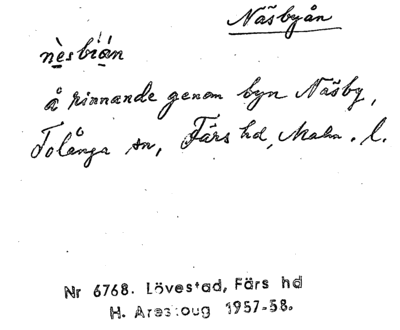 Näsbyån
nèsbiá̱n
å rinnande genom byn Näsby,
Tolånga sn, Färs hd, Malm. l.
Nr 6768. Lövestad, Färs hd
H. Areskoug 1957-58.